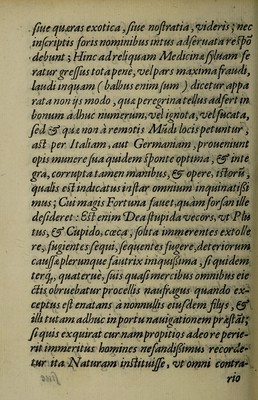 siue quæras exotica, siue nostratia, videris; nec
inscriptis foris nominibus intus adseruata respō
debunt; Hinc ad reliquam Medicinæ syluam fe
ratur gressus tota pene, vel pars maxima fraudi,
laudi inquam (balbus enim sum) dicetur appa
rata non ijs modo, quæ peregrina tellus adfert in
bonum adhuc numerum, vel ignota, vel fucata,
sed & quæ non à remotis Mūdi locis petuntur,
ast per Italiam, aut Germaniam, proueniunt
opis munere sua quidem sponte optima, & inte
gra, corrupta tamen manibus, & opere, istorū,
qualis est indicatus instar omnium inquinatissi
mus; Cui magis Fortuna fauet, quàm forsan ille
desideret: Est enim Dea stupida vecors, vt Plu
tus, & Cupido, cæca, solita immerentes extolle
re, fugientes sequi, sequentes fugere, deteriorum
caussæ plerunque fautrix iniquissima, si quidem
terq́, quaterue, suis quasi mercibus omnibus eie
ctis obruebatur procellis naufragus quando ex-
ceptus est enatans à nonnullis eiusdem filijs, &
illi tutam adhuc in portu nauigationem præstāt;
si quis exquirat cur nam propitios adeo repere-
rit immeritus homines nefandissimus recorde-
tur ita Naturam instituisse, vt omni contra-
rio